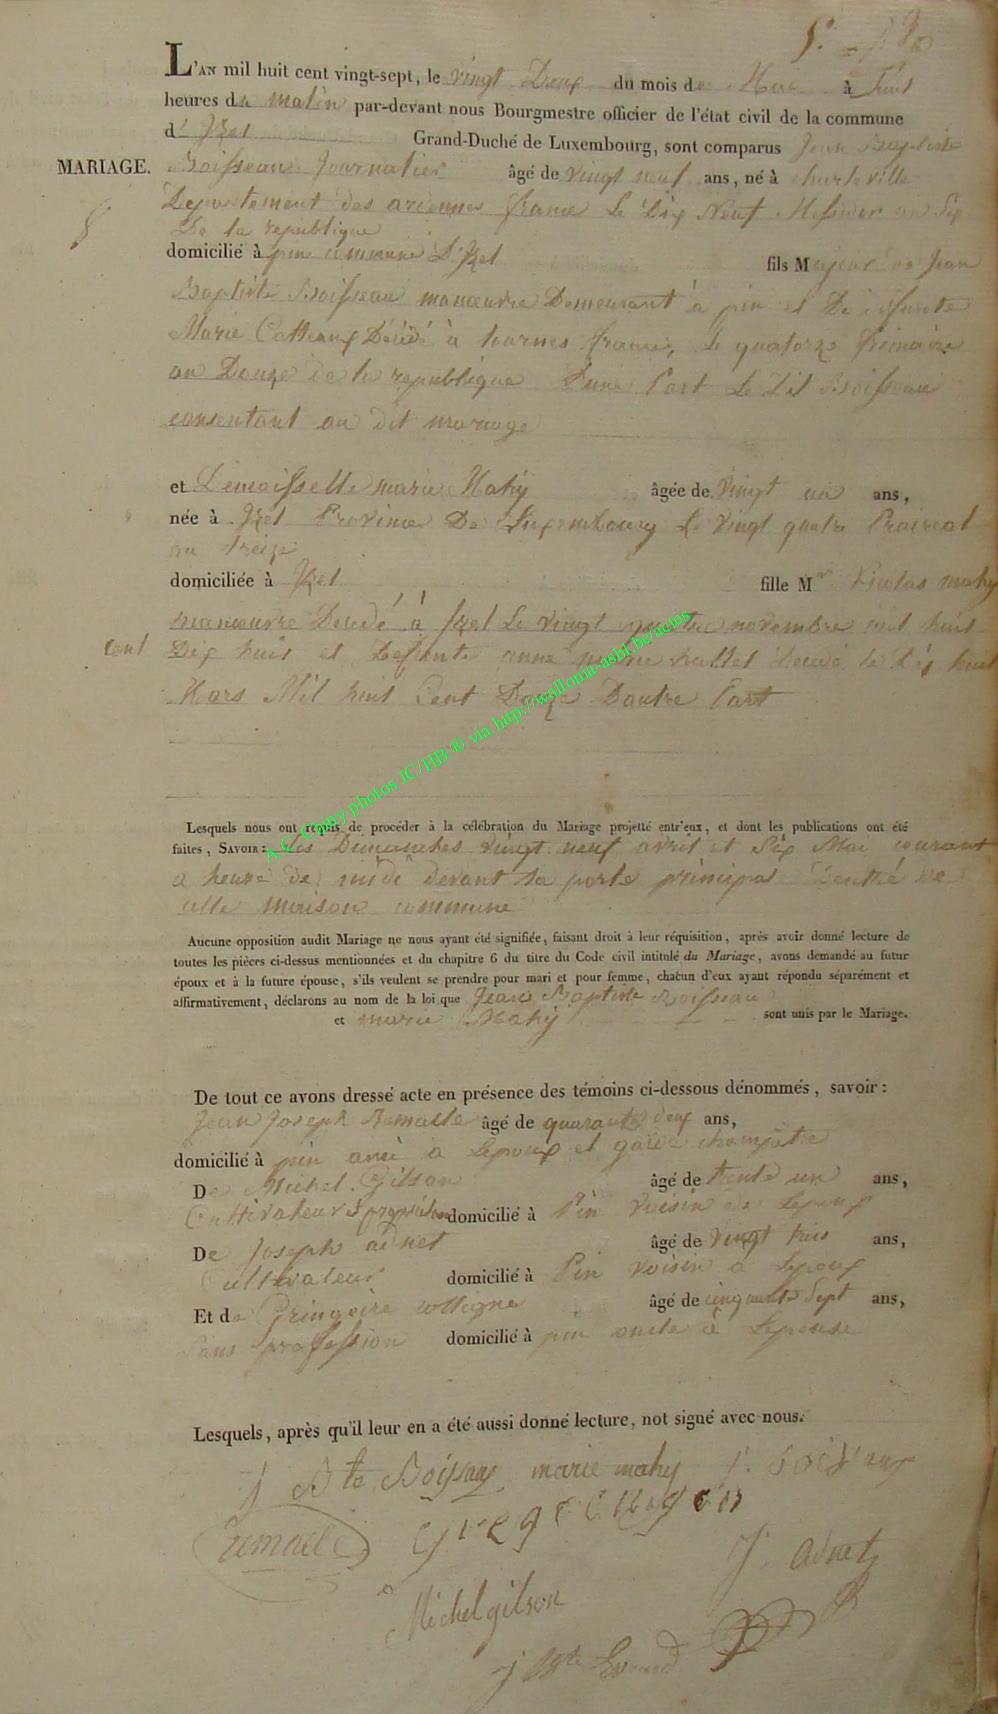 L'AN mil huit cent vingt-sept, le vingt Deux du mois de Mai à huit
heures du matin par-devant nous Bourgmestre officier de l'état civil de la commune
d'Izel Grand-Duché de Luxembourg, sont comparus Jean Baptiste
MARIAGE. Boisseau Journalier âgé de vingt neuf ans, né à charleville
Departement des ardennes france Le Dix Neuf Messidor an Six
De la republique
domicilié à pin commune D'Izel fils Majeur de Jean
Baptiste Boisseau manoeuvre Demeurant à pin et De defunte
Marie Catteaux Décédé à tournes france, Le quatorze frimaire
an Douze de la republique D'une Part Le Dit Boisseau
consentant au dit mariage
et Demoisselle marie Mahy âgée de Vingt un ans,
née à Izel Province De Luxembourg Le Vingt quatre Prairial
an treize
domiciliée à Izel fille M Nicolas mahy
manoeuvre Decedé à Izel Le vingt quatre novembre mil huit
cent Dix huit et Defunte anne marie hallet Decedé le Dix huit
Mars Mil huit Cent Douze D'autre Part
Lesquels nous ont requis de procéder à la célébration du Mariage projetté entr'eux, et dont les publications ont été
faites, SAVOIR: Les Dimanches vingt neuf avril et Six Mai courant
a heure de midi devant la porte principal D'entré de
cette maison commune
Aucune opposition audit Mariage ne nous ayant été signifiée, faisant droit à leur réquisition, après avoir donné lecture de
toutes les pièces ci-dessus mentionnées et du chapitre 6 du titre du Code civil intitulé du Mariage, avons demandé au futur
époux et à la future épouse, s'ils veulent se prendre pour mari et pour femme, chacun d'eux ayant répondu séparément et
affirmativement, déclarons au nom de la loi que Jean Baptiste Boisseau
et marie Mahy sont unis par le Mariage.
De tout ce avons dressé acte en présence des témoins ci-dessous dénommés, savoir:
Jean Joseph Remacle âgé de quarante deux ans,
domicilié à pin ami à Lepoux et garde champetre
De Michel Gilson âgé de trente un ans,
Cultivateur et propriétaire domicilié à Pin voisin de Lepoux
De Joseph adnet âgé de Vingt trois ans,
Cultivateur domicilié à Pin voisin à Lepoux
Et de Gringoire collignon âgé de cinquante Sept ans,
Sans profession domicilié à pin oncle à Lepouse
Lesquels, après qu'il leur en a été aussi donné lecture, ont signé avec nous.
J Bte Boisseau marie mahy
remacle
J. adnet
Michel gilson
A.C. Chiny photos JC/HB © via http://wallonia-asbl.be/actes